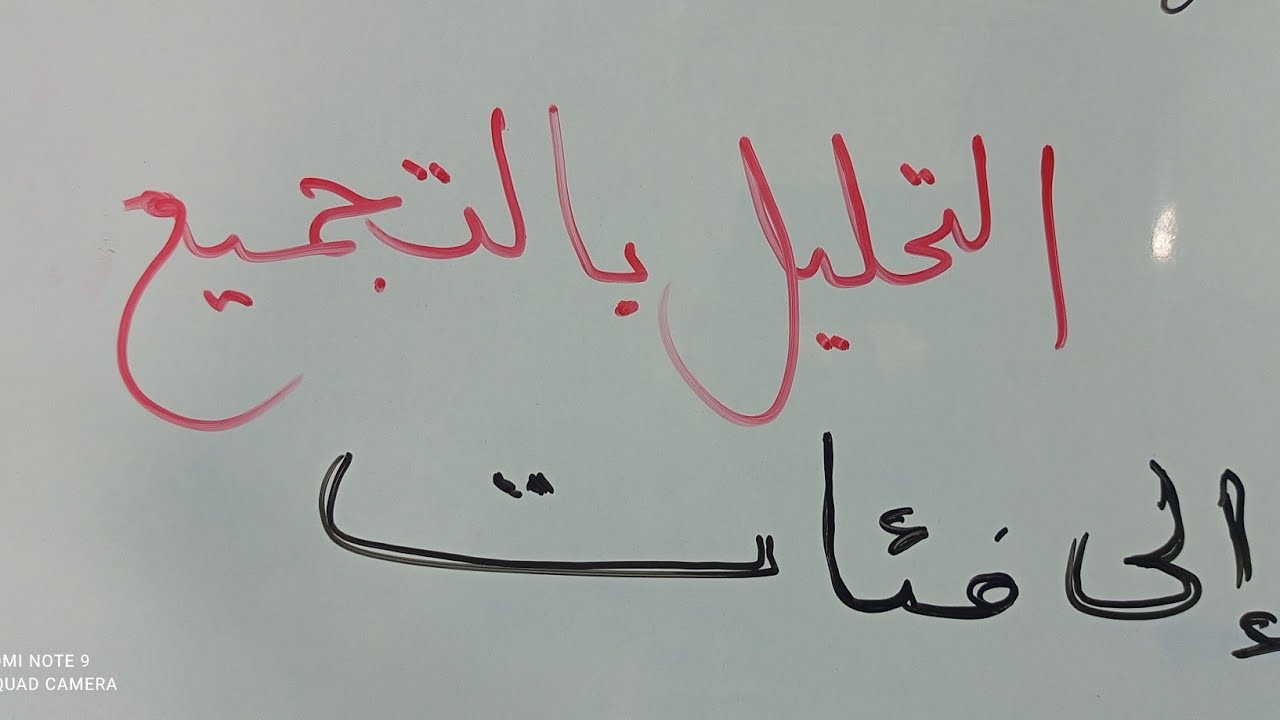 التحليل بالتجميع
إلى فئات
OMI NOTE 9
QUAD CAMERA